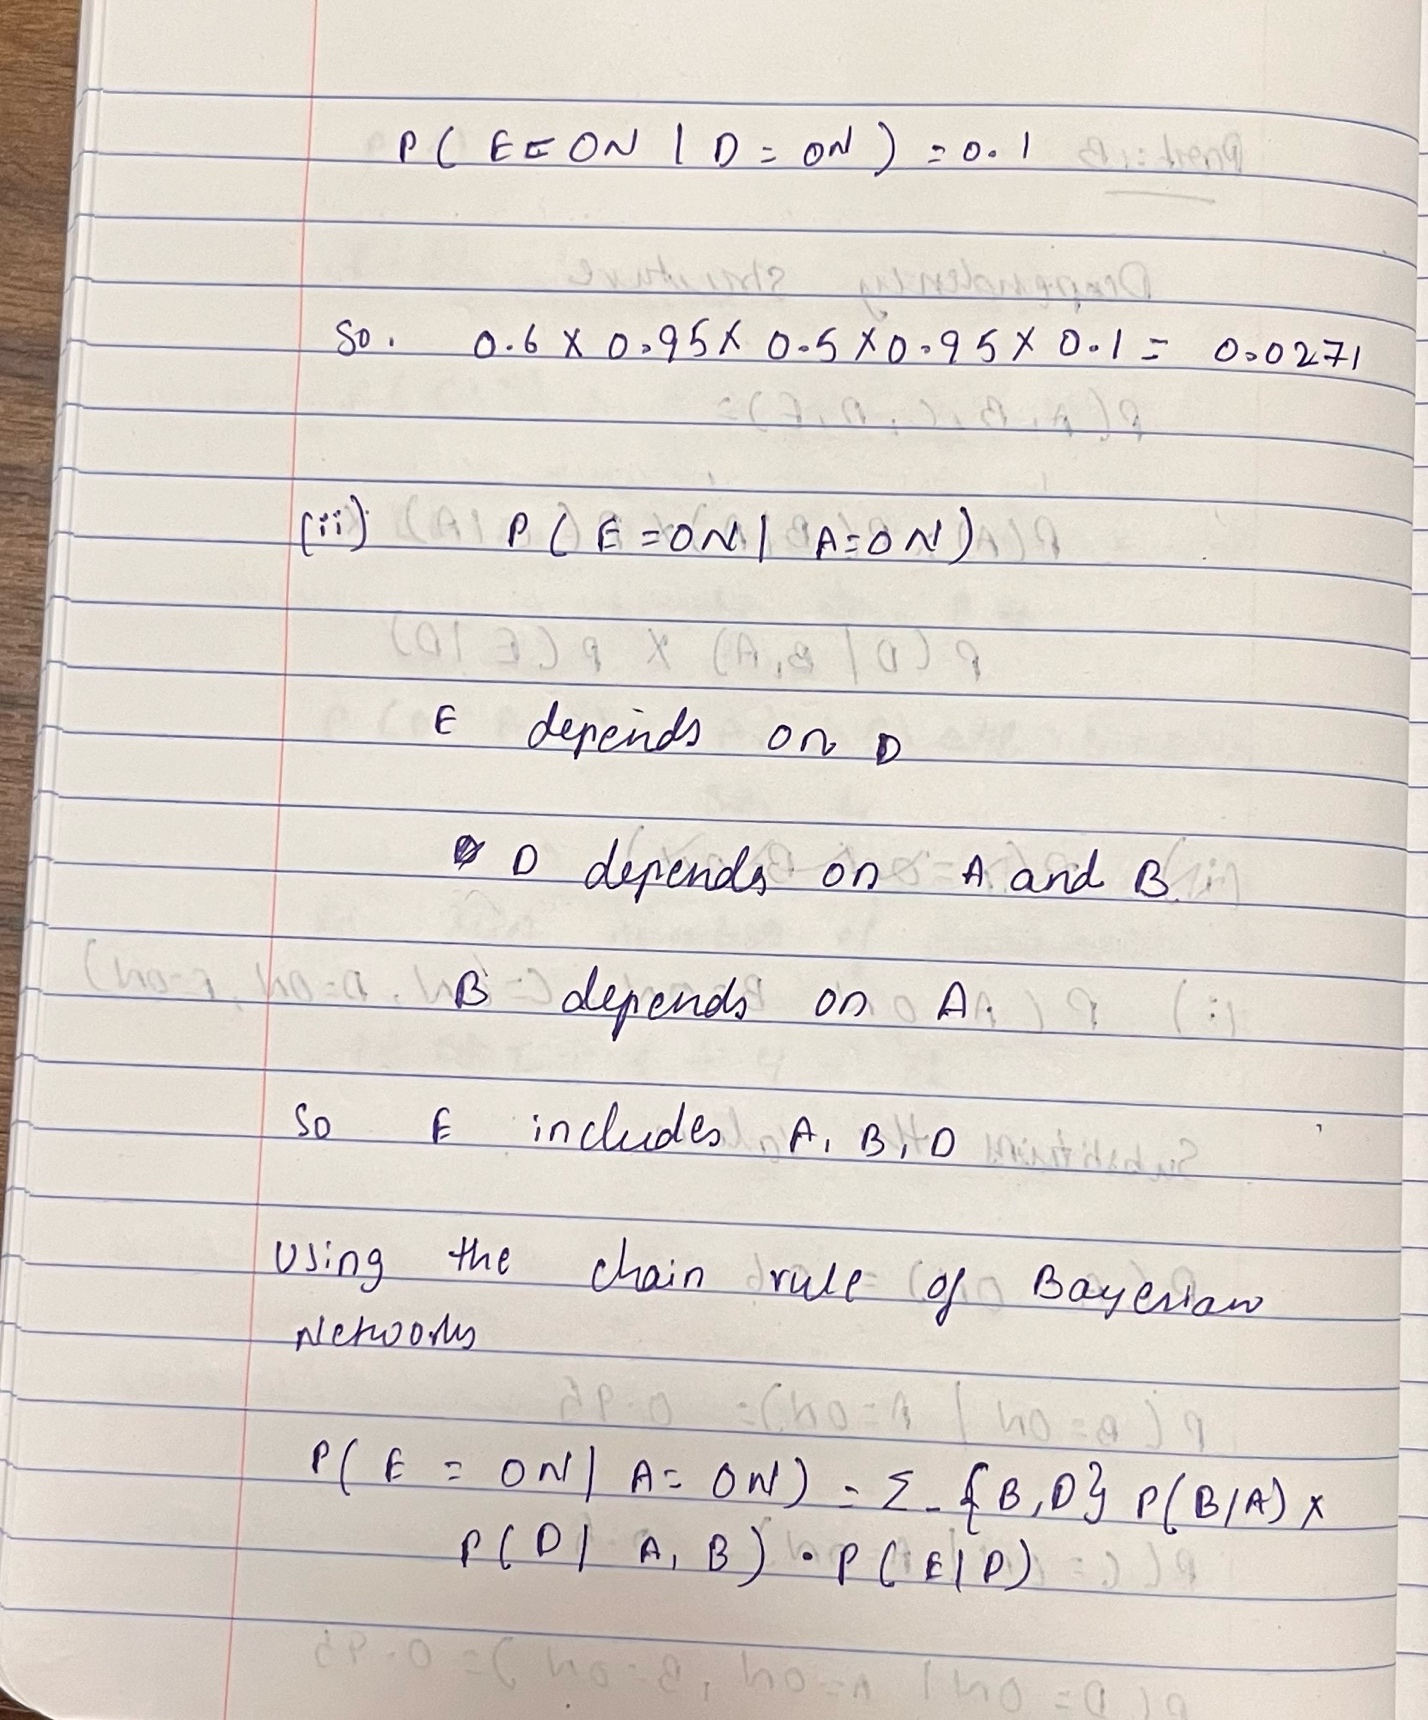 P( E = ON | D = ON ) = 0.1
So. 0.6 X 0.95 X 0.5 X 0.95 X 0.1 = 0.0271
(ii) P ( E = ON | A = ON )
E depends on D
D depends on A and B.
B depends on A.
So E includes A, B, D
Using the chain rule of Bayesian
Networks
P( E = ON | A = ON ) = Σ_{B,D} P(B/A) x
P( D | A, B ) • P ( E | D )